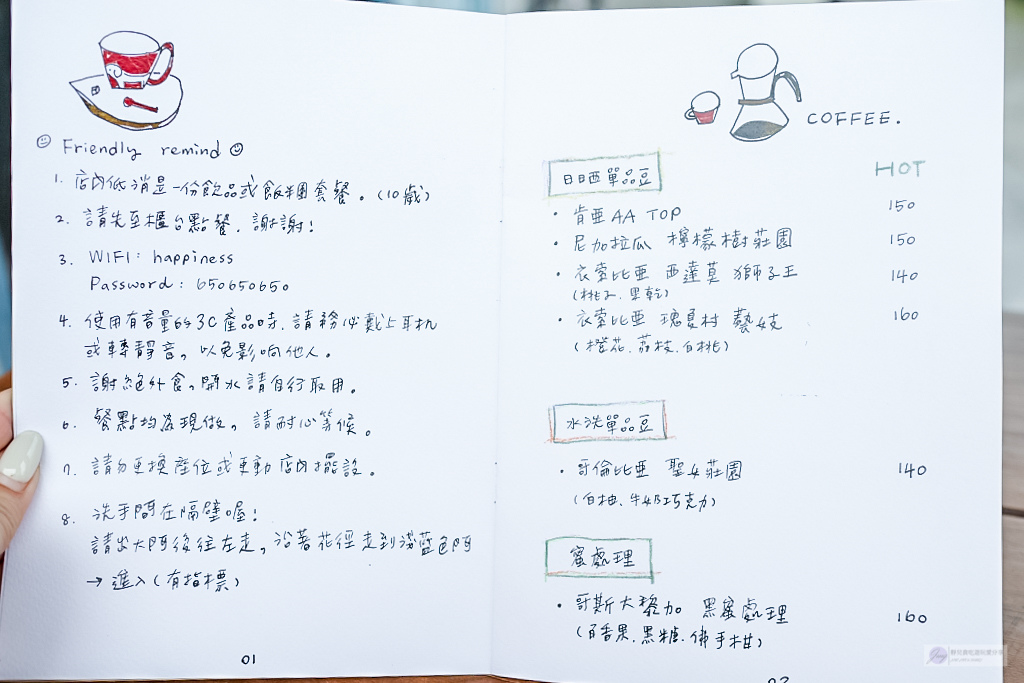 Friendly remind
1. 店內低消是一份飲品或飯糰套餐。(10歲)
2. 請先至櫃台點餐，謝謝！
3. WIFI: happiness
Password: 650650650
4. 使用有音量的3C產品時，請務必戴上耳机
或轉靜音，以免影响他人。
5. 謝絕外食，開水請自行取用。
6. 餐點均為現做，請耐心等候。
7. 請勿更換座位或更動店內擺設。
8. 洗手間在隔壁喔！
請出大門後往左走，沿著花徑走到淺藍色門
→ 進入(有指標)
01
COFFEE.
日晒單品豆 HOT
• 肯亞 AA TOP 150
• 尼加拉瓜 檸檬樹莊園 150
• 衣索比亞 西達莫 獅子王 140
(桃子.果乾)
• 衣索比亞 瑰夏村 藝妓 160
(橙花.荔枝.白桃)
水洗單品豆
• 哥倫比亞 聖女莊園 140
(白柚.牛奶巧克力)
蜜處理
• 哥斯大黎加 黑蜜處理 160
(百香果.黑糖.佛手柑)